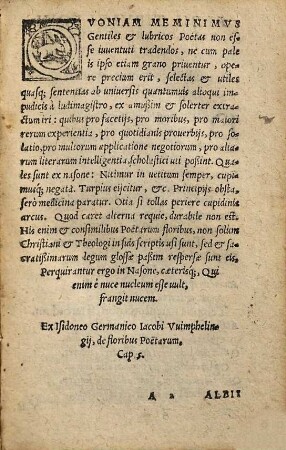 QVONIAM MEMINIMVS
Gentiles & lubricos Poëtas non es=
se iuuentuti tradendos, ne cum pale
is ipso etiam grano priuentur, ope=
re precium erit, selectas & utiles
quasq; sententias ab uniuersis quantumuis alioqui im=
pudicis à ludimagistro, ex amussim & solerter extra
ctum iri: quibus pro facetijs, pro moribus, pro maiori
rerum experientia, pro quotidianis prouerbijs, pro so=
latio, pro multorum applicatione negotiorum, pro ali=
arum literarum intelligentia, scholastici uti possint. Qua=
les sunt ex nasone: Nitimur in uetitum semper, cupi=
musq; negata. Turpius eijcitur, &c. Principijs obsta,
serò medicina paratur. Otia si tollas periere cupidinis
arcus. Quod caret alterna requie, durabile non est.
His enim & consimilibus Poëtarum floribus, non solùm
Christiani & Theologi in suis scriptis usi sunt, sed & sa=
cratißimarum legum glossæ paßim respersæ sunt eis.
Perquirantur ergo in Nasone, cæterisq;, Qui
enim è nuce nucleum esse uult,
frangit nucem.
Ex Isidoneo Germanico Iacobi Vuimphelin=
gij, de floribus Poëtarum,
Cap. 5.
A 2 ALBII